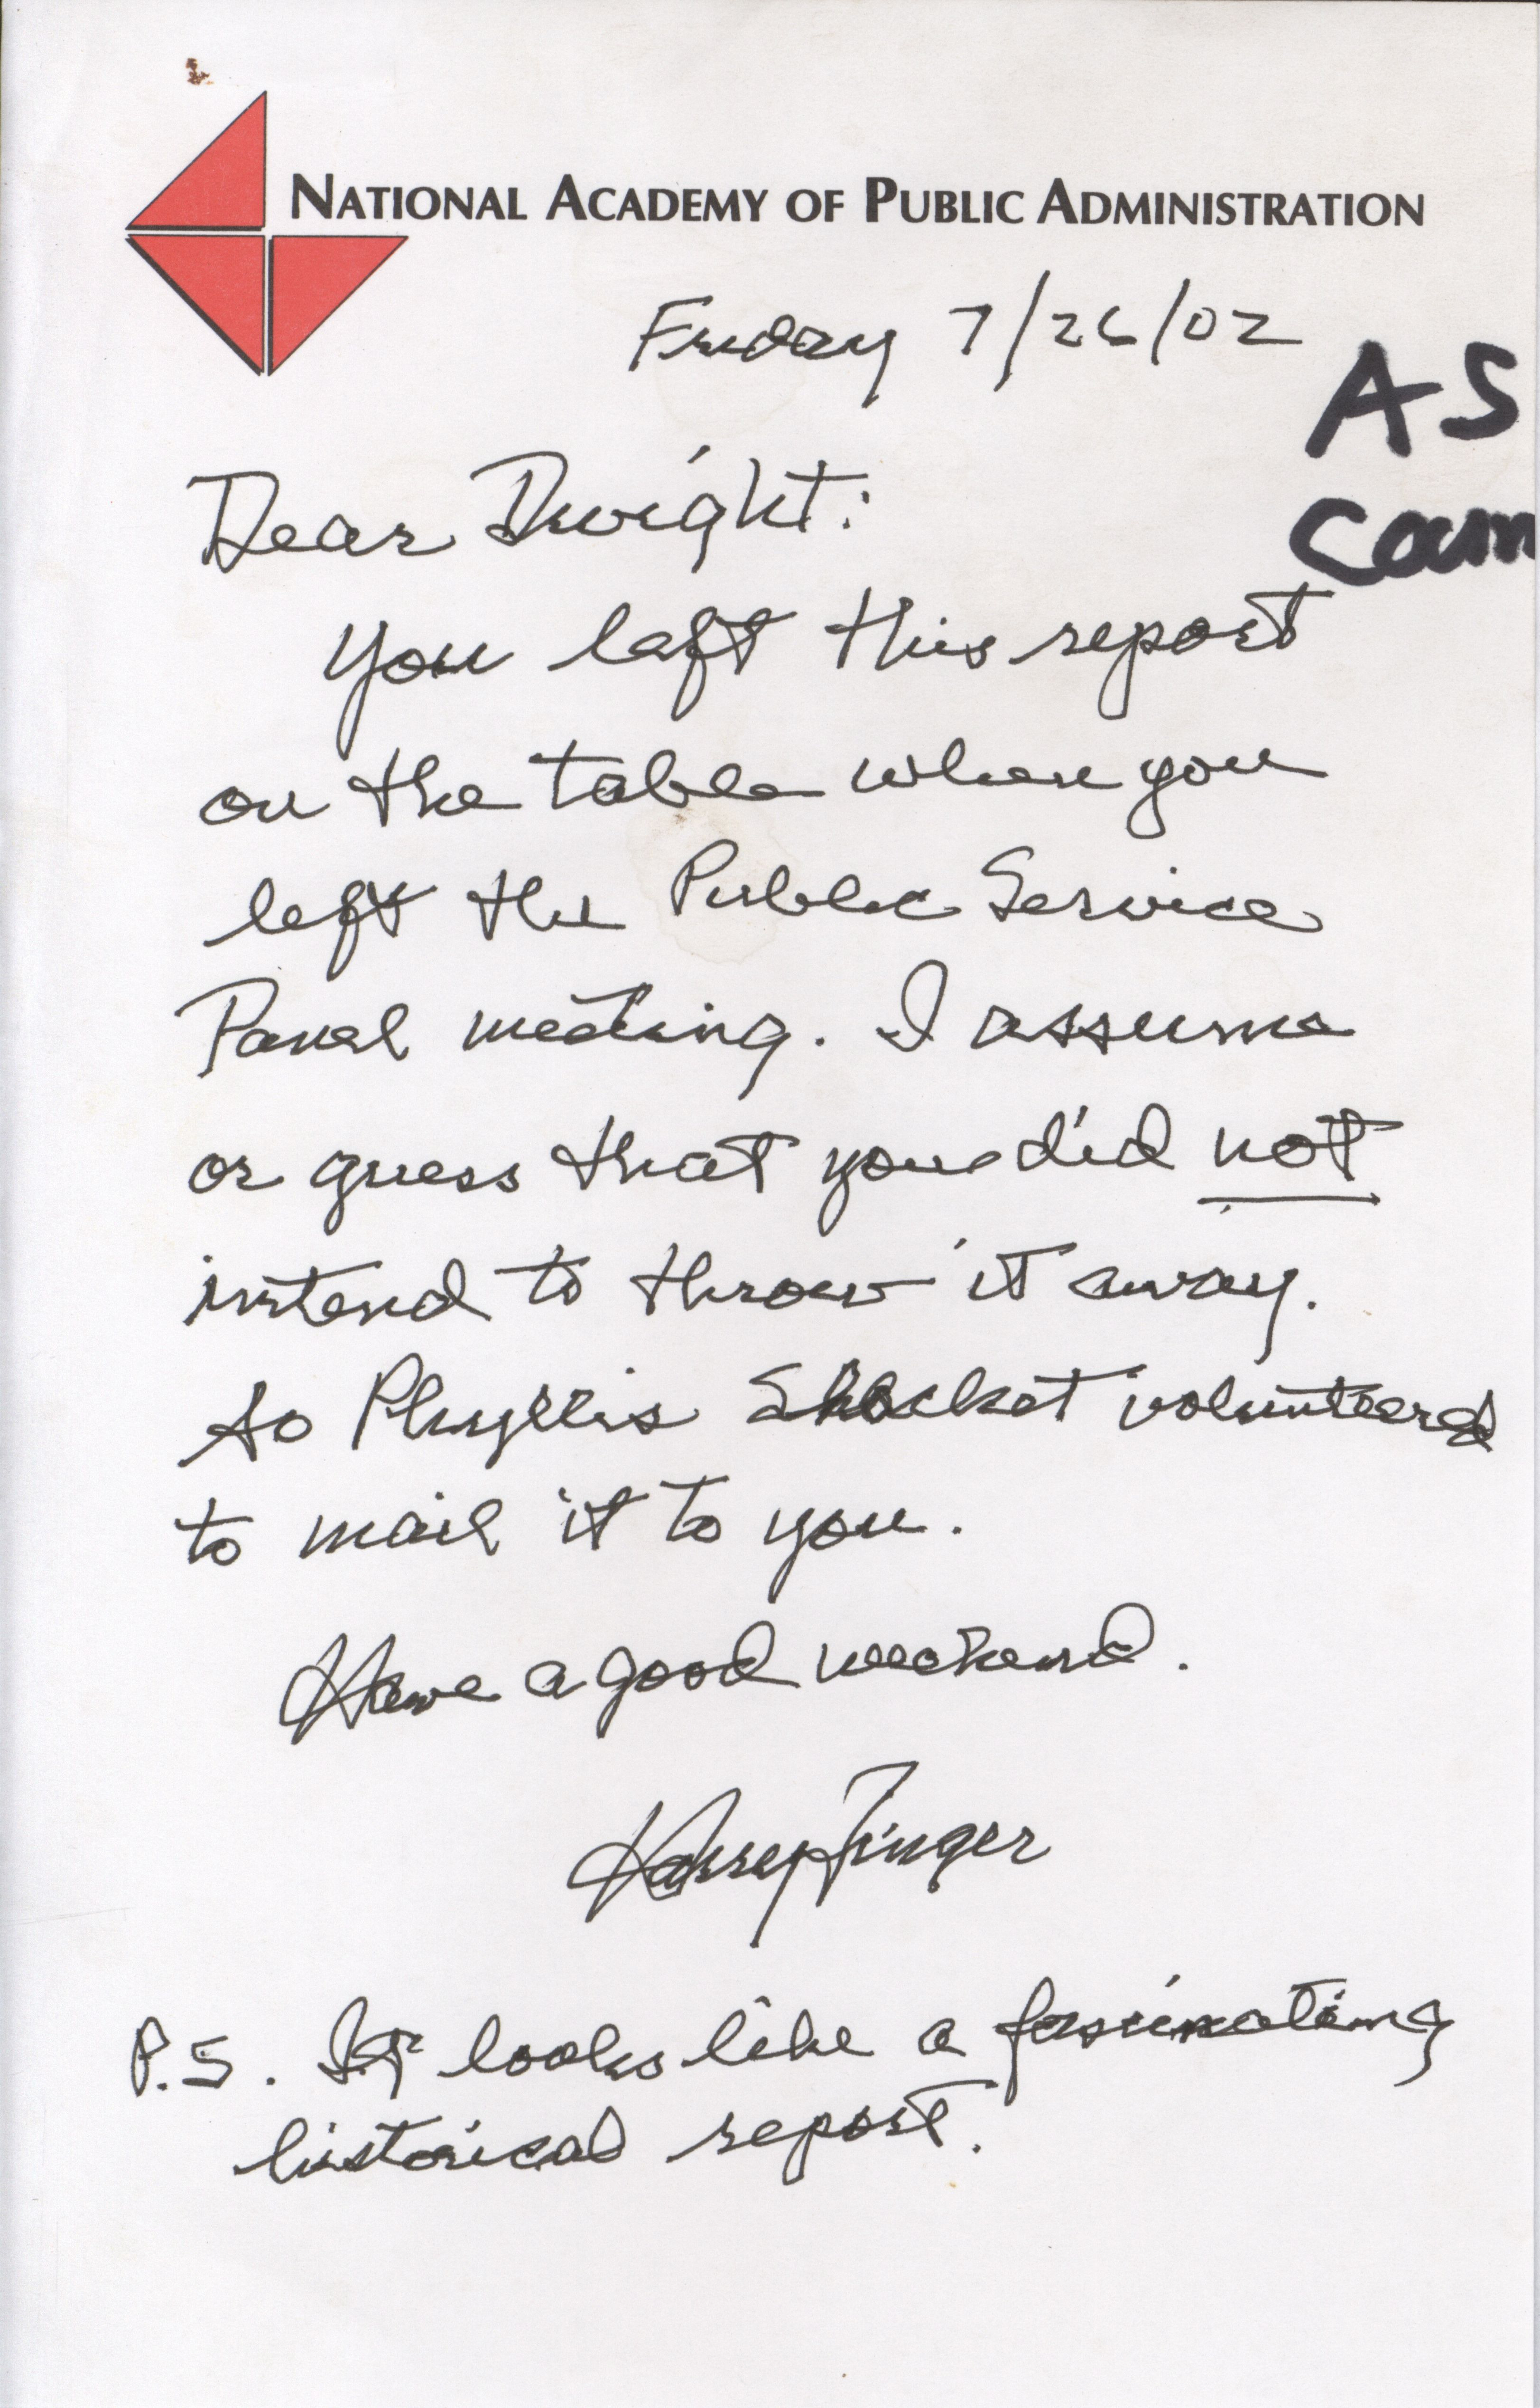 NATIONAL ACADEMY OF PUBLIC ADMINISTRATION
Friday 7/26/02
AS
Cam
Dear Dwight:
You left this report
on the table when you
left the Public Service
Panel meeting. I assume
or guess that you did not
intend to throw it away.
So Phyllis volunteered
to mail it to you.
Have a good weekend.
Harry Finger
P.S. It looks like a fascinating
historical report.